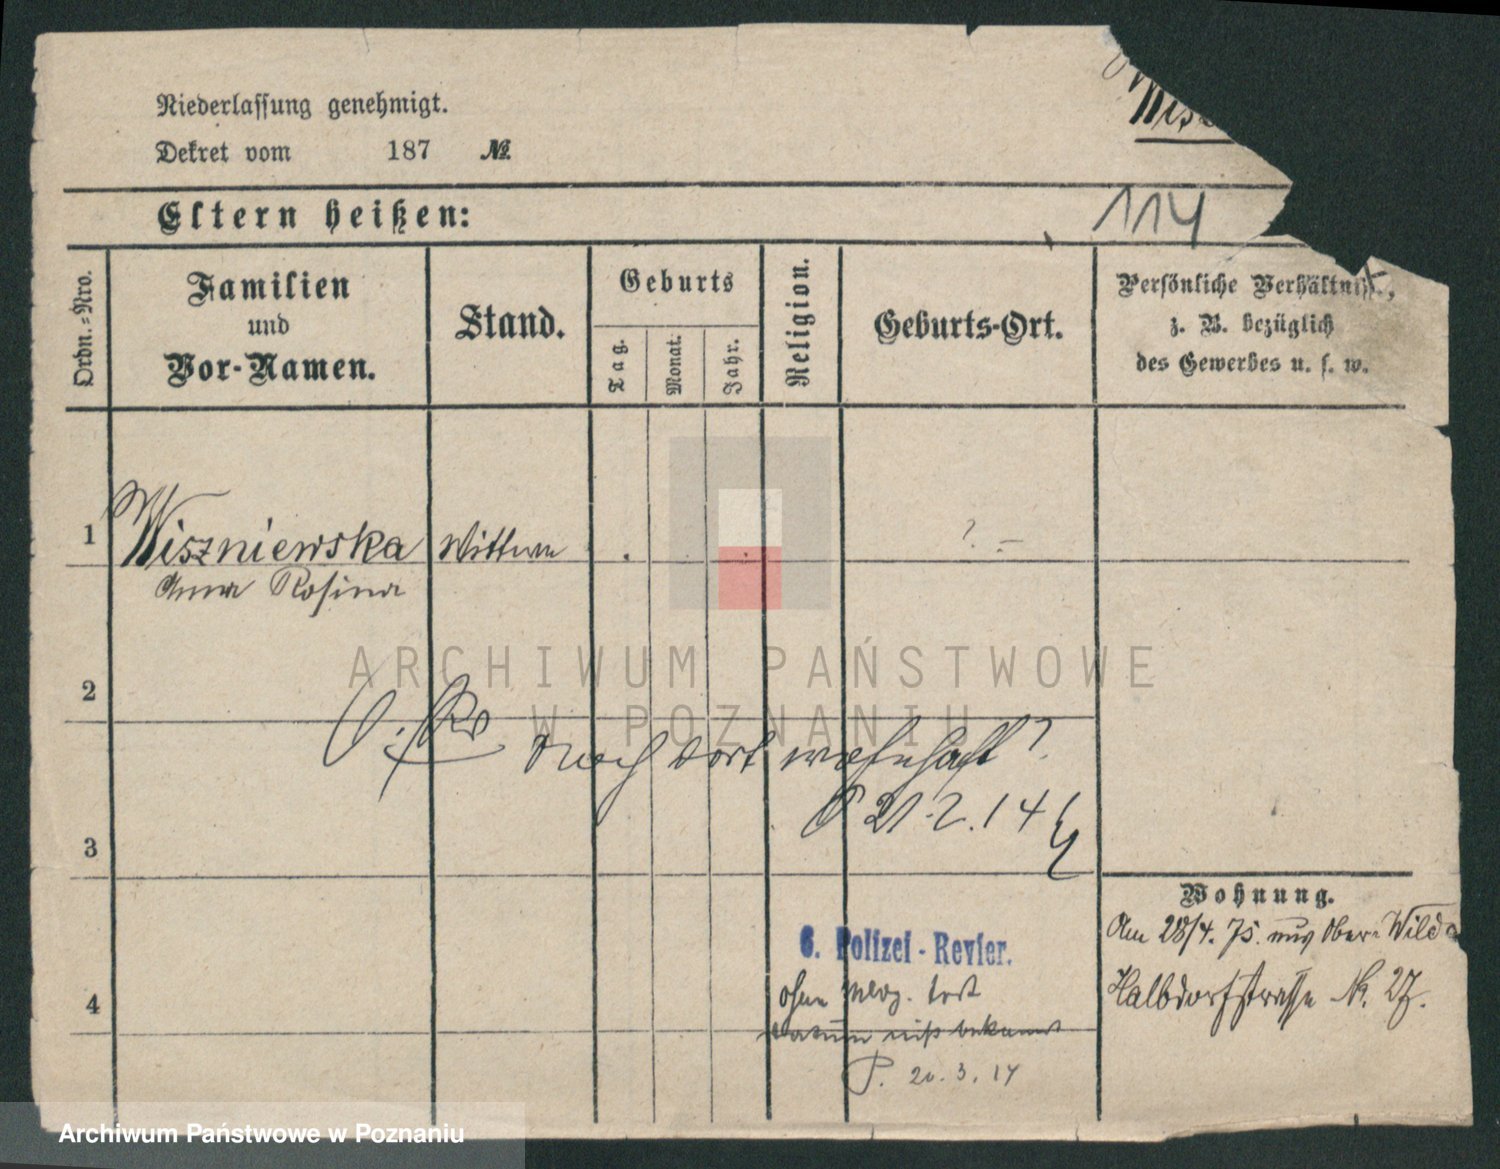 Wis
Niederlassung genehmigt.
Dekret vom 187 №
Eltern heißen:
114
Ordn.-Nro.
Familien
und
Vor-Namen.
Stand.
Geburts
Tag.
Monat.
Jahr.
Religion.
Geburts-Ort.
Persönliche Verhältniss.,
z. B. bezüglich
des Gewerbes u. s. w.
1
Wiszniewska
Wittwe
? –
Anna Rosina
2
noch dort wohnhaft?
P 21.2.14
3
Wohnung.
Am 28/4. 75. aus Ober-Wilda
Halbdorfstrasse Nr. 27.
6. Polizei-Revier.
ohne Mldg. fort
Datum nicht bekannt
P. 20.3.14
4
ARCHIWUM PAŃSTWOWE
W POZNANIU
Archiwum Państwowe w Poznaniu